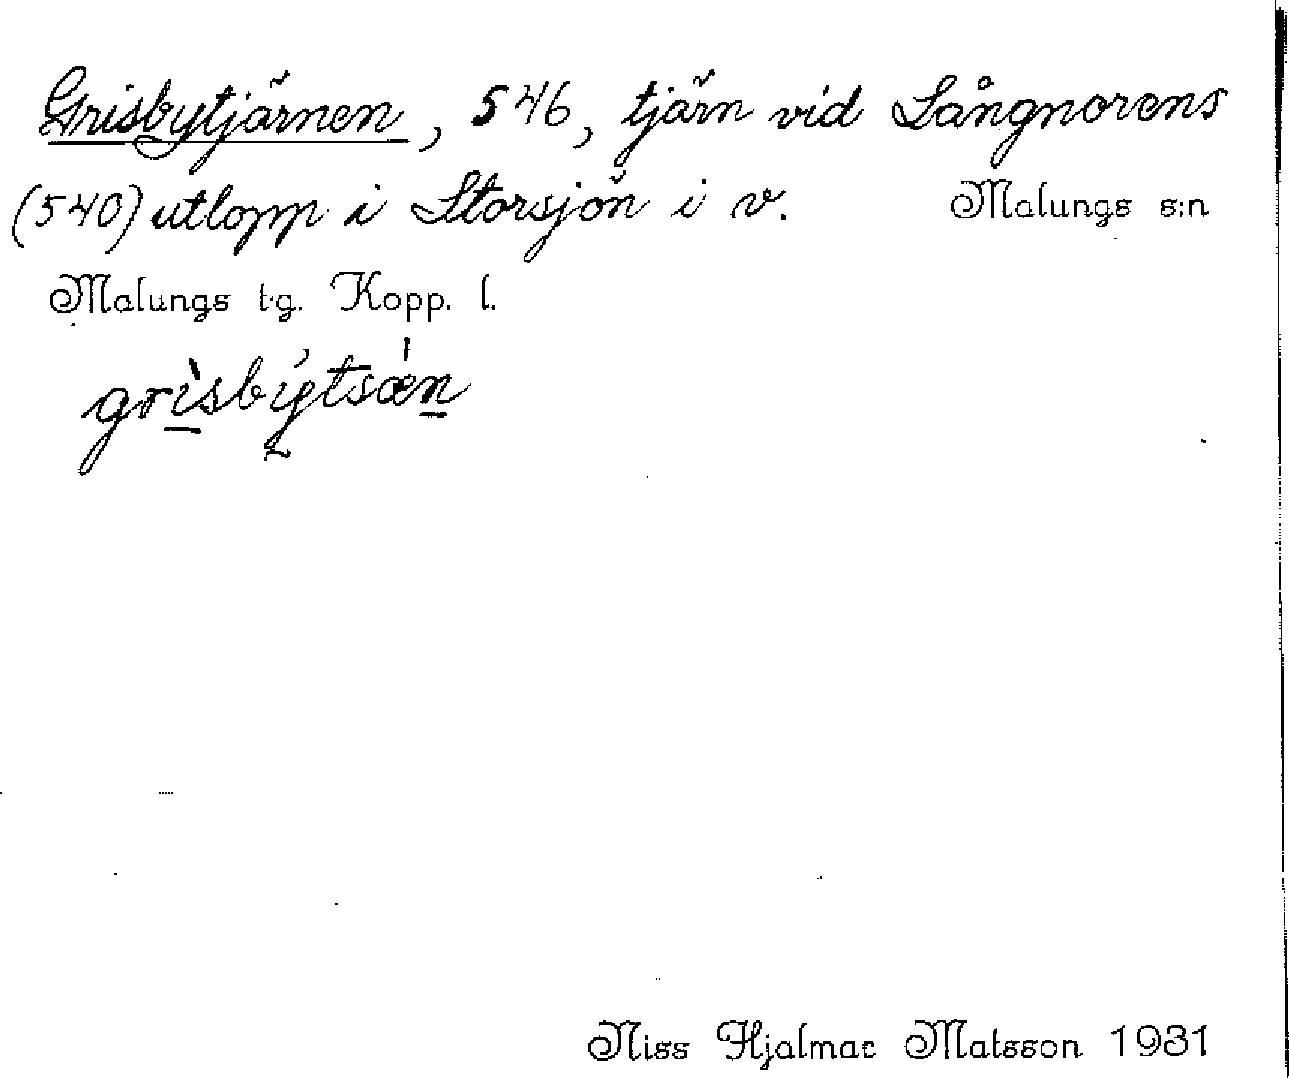 Grisbytjärnen, 546, tjärn vid Långnorens
(540) utlopp i Storsjön i v. Malungs s:n
Malungs tg. Kopp. l.
grìsbýtsǽn
Niss Hjalmar Matsson 1931